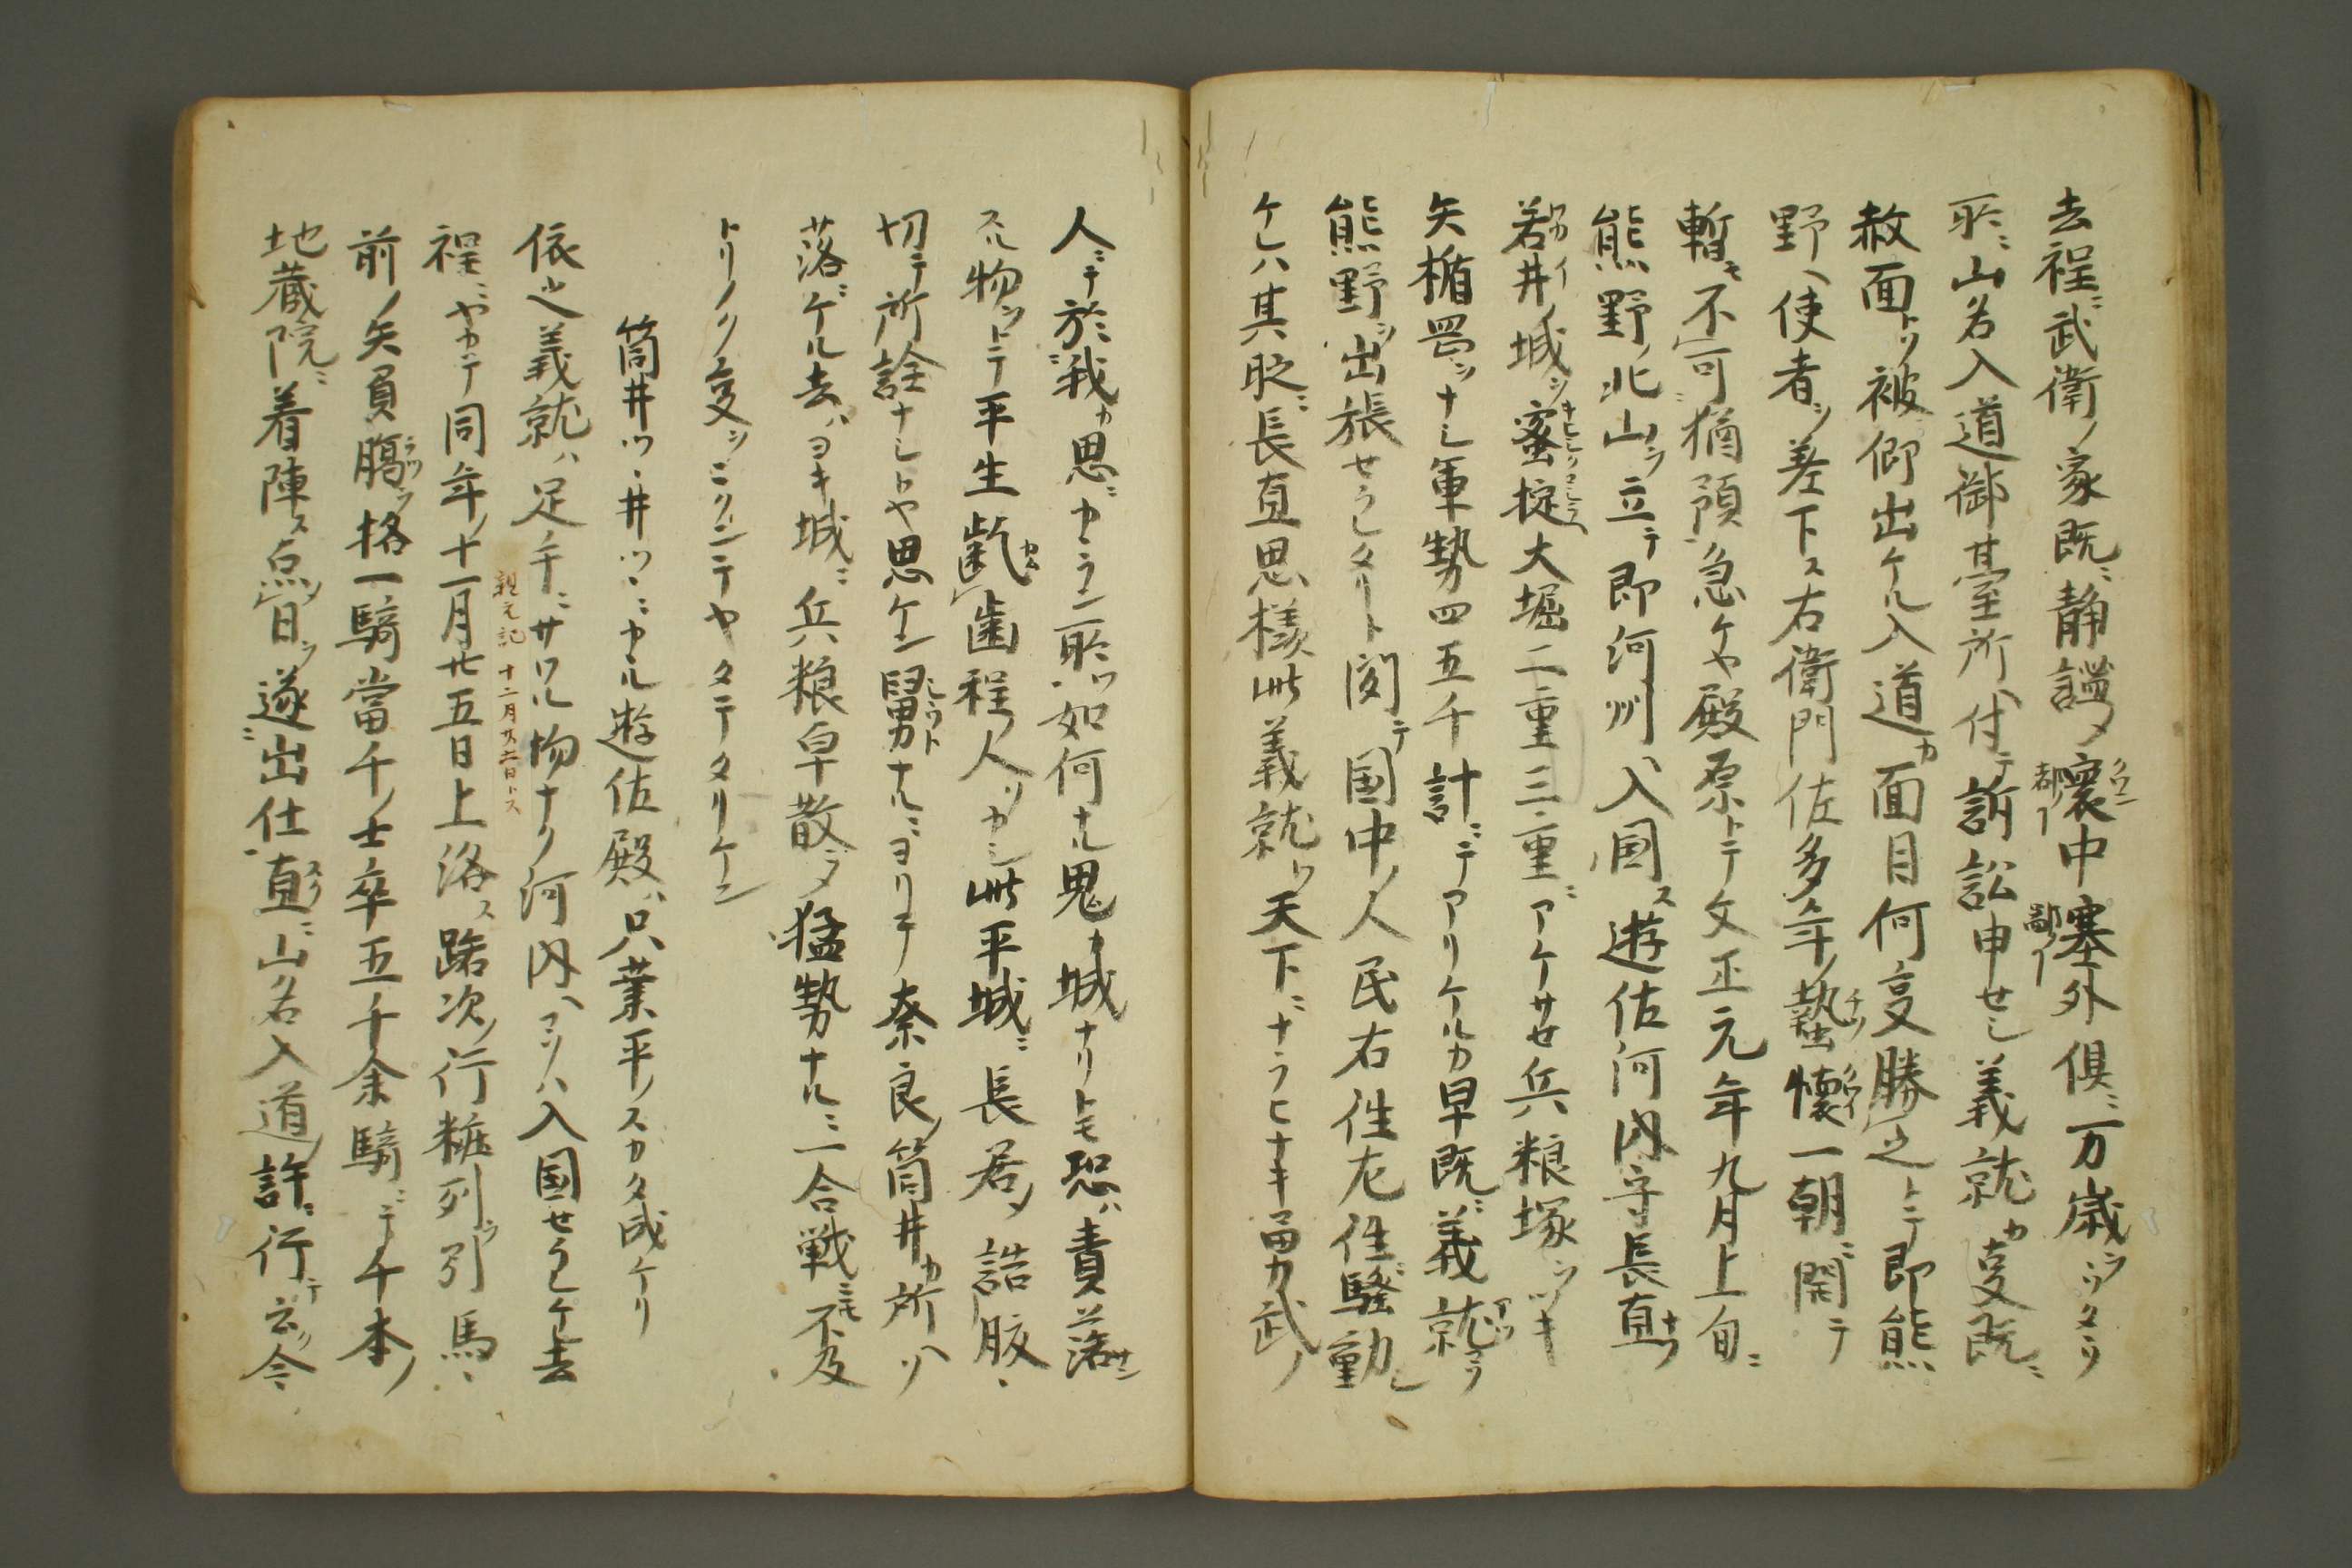 去程ニ武衛ノ家既ニ静謐メ懐中塞外倶ニ万歳ヲソウタウ
所ニ山名入道御臺所ヘ付テ訴訟申セシ義就カ叓既ニ
赦面トソ被仰出ケル入道カ面目何叓勝之トテ即熊
野ヘ使者ヲ差下ス右衛門佐多年ノ蟄懐一朝ニ開テ
暫モ不可猶預急ケヤ殿原トテ文正元年九月上旬ニ
熊野ノ北山ヲ立テ即河州ヘ入国ス遊佐河内守長直ハ
若井ノ城ヲ蜜掟大堀二重三重ニアケサセ兵粮塚ヲツキ
矢楯岡ヲナシ軍勢四五千計ニテアリケルカ早既ニ義就
熊野ヲ出張セラレタリト聞テ国中ノ人民右往左往ニ騒動シ
ケレハ其時ニ長直思様此義就ハ天下ニナラヒナキ勇武ノ
人ニテ於我カ思ニカラン所ハ如何ナル鬼カ城ナリトモ恐ハ責落サン
スル物ヲトテ平生齕歯程ノ人ソカシ此平城ニ長居メ詰腹
切テ所詮ナシトヤ思ケン舅ナルニヨリテ奈良ノ筒井カ所ヘソ
落ニケル去ハヨキ城ニ兵粮卓散ニメ猛勢ナルニ一合戦ニモ不及
トリノク叓ヲニクンテヤタテタリケン
筒井ツヽ井ツヽニカル遊佐殿ハ只業平ノスカタ成ケリ
依之義就ハ足手ニサワル物ナク河内ヘコソハ入国セラレケレ去
程ニヤカテ同年ノ十一月廿五日上洛ス路次ノ行粧列ヲ引馬
親元記 十二月廿六日トス
前ノ矢負腸格一騎當千ノ士卒五千余騎ニテ千本ノ
地蔵院ニ着陣ス点日ヲ遂ニ出仕直ニ山名入道ノ許ニ行テ云ク今